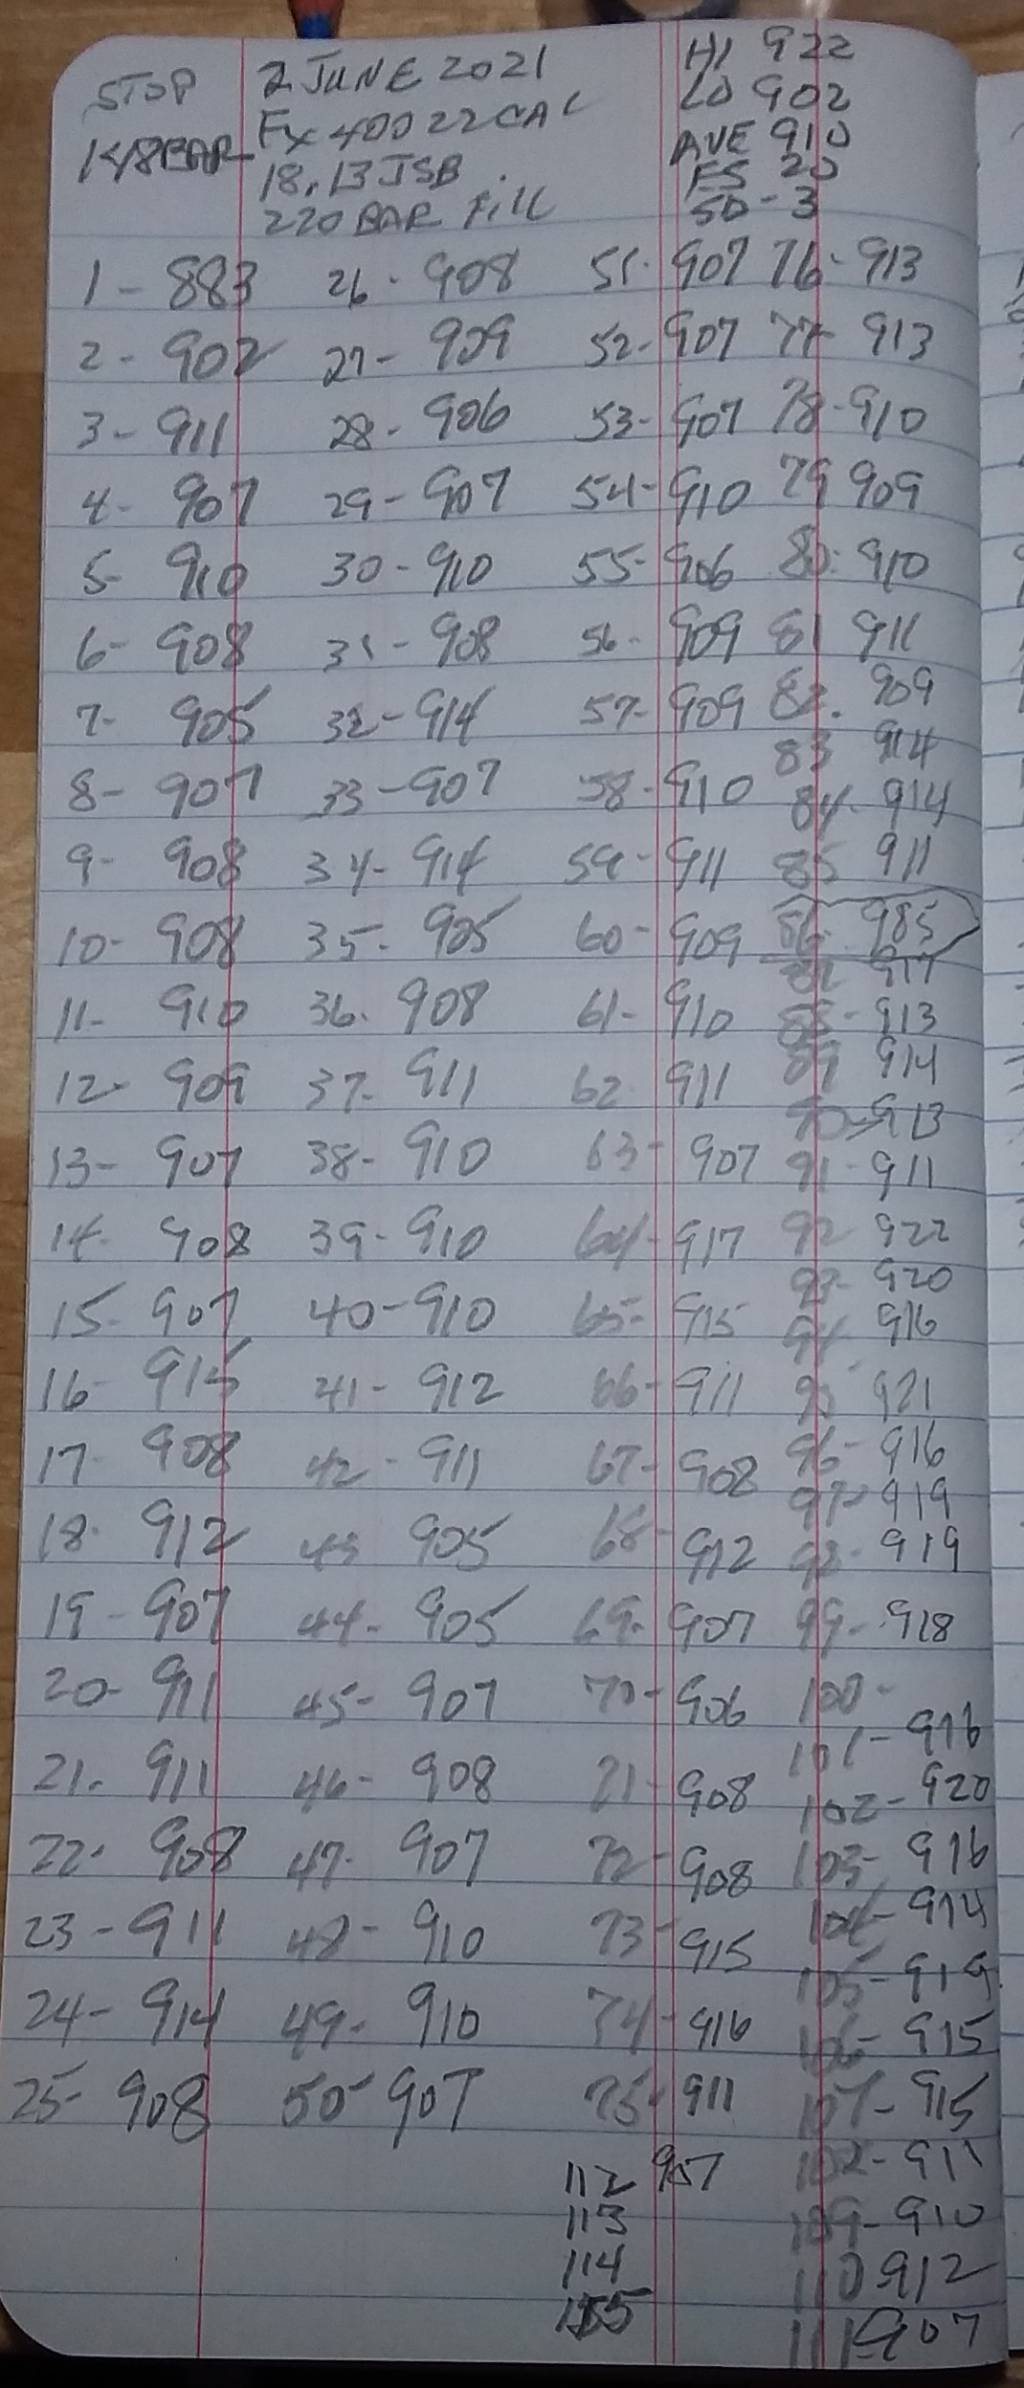 STOP
148 BAR
2 JUNE 2021
FX 400 22 CAL
18.13 JSB
220 BAR FILL
HI 922
LO 902
AVE 910
ES 20
SD - 3
1 - 883
2 - 902
3 - 911
4 - 907
5 - 910
6 - 908
7 - 905
8 - 907
9 - 908
10 - 908
11 - 910
12 - 909
13 - 907
14 - 908
15 - 907
16 - 915
17 - 908
18 - 912
19 - 907
20 - 911
21 - 911
22 - 908
23 - 911
24 - 914
25 - 908
26 - 908
27 - 909
28 - 906
29 - 907
30 - 910
31 - 908
32 - 914
33 - 907
34 - 914
35 - 905
36 - 908
37 - 911
38 - 910
39 - 910
40 - 910
41 - 912
42 - 911
43 905
44 - 905
45 - 907
46 - 908
47 - 907
48 - 910
49 - 910
50 - 907
51 - 907
52 - 907
53 - 907
54 - 910
55 - 906
56 - 909
57 - 909
58 - 910
59 - 911
60 - 909
61 - 910
62 911
63 - 907
64 - 917
65 - 915
66 - 911
67 - 908
68 - 912
69 - 907
70 - 906
71 - 908
72 - 908
73 - 915
74 - 916
75 - 911
76 - 913
77 - 913
78 - 910
79 909
80 - 910
81 911
82. 909
83 914
84 - 914
85 911
86 - 985
87 917
88 - 913
89 914
90 - 913
91 - 911
92 - 922
93 - 920
94 916
95 921
96 - 916
97 - 919
98 - 919
99 - 918
100 -
101 - 916
102 - 920
103 - 916
104 - 914
105 - 919
106 - 915
107 - 915
108 - 911
109 - 910
110 912
111 - 907
112 907
113
114
115